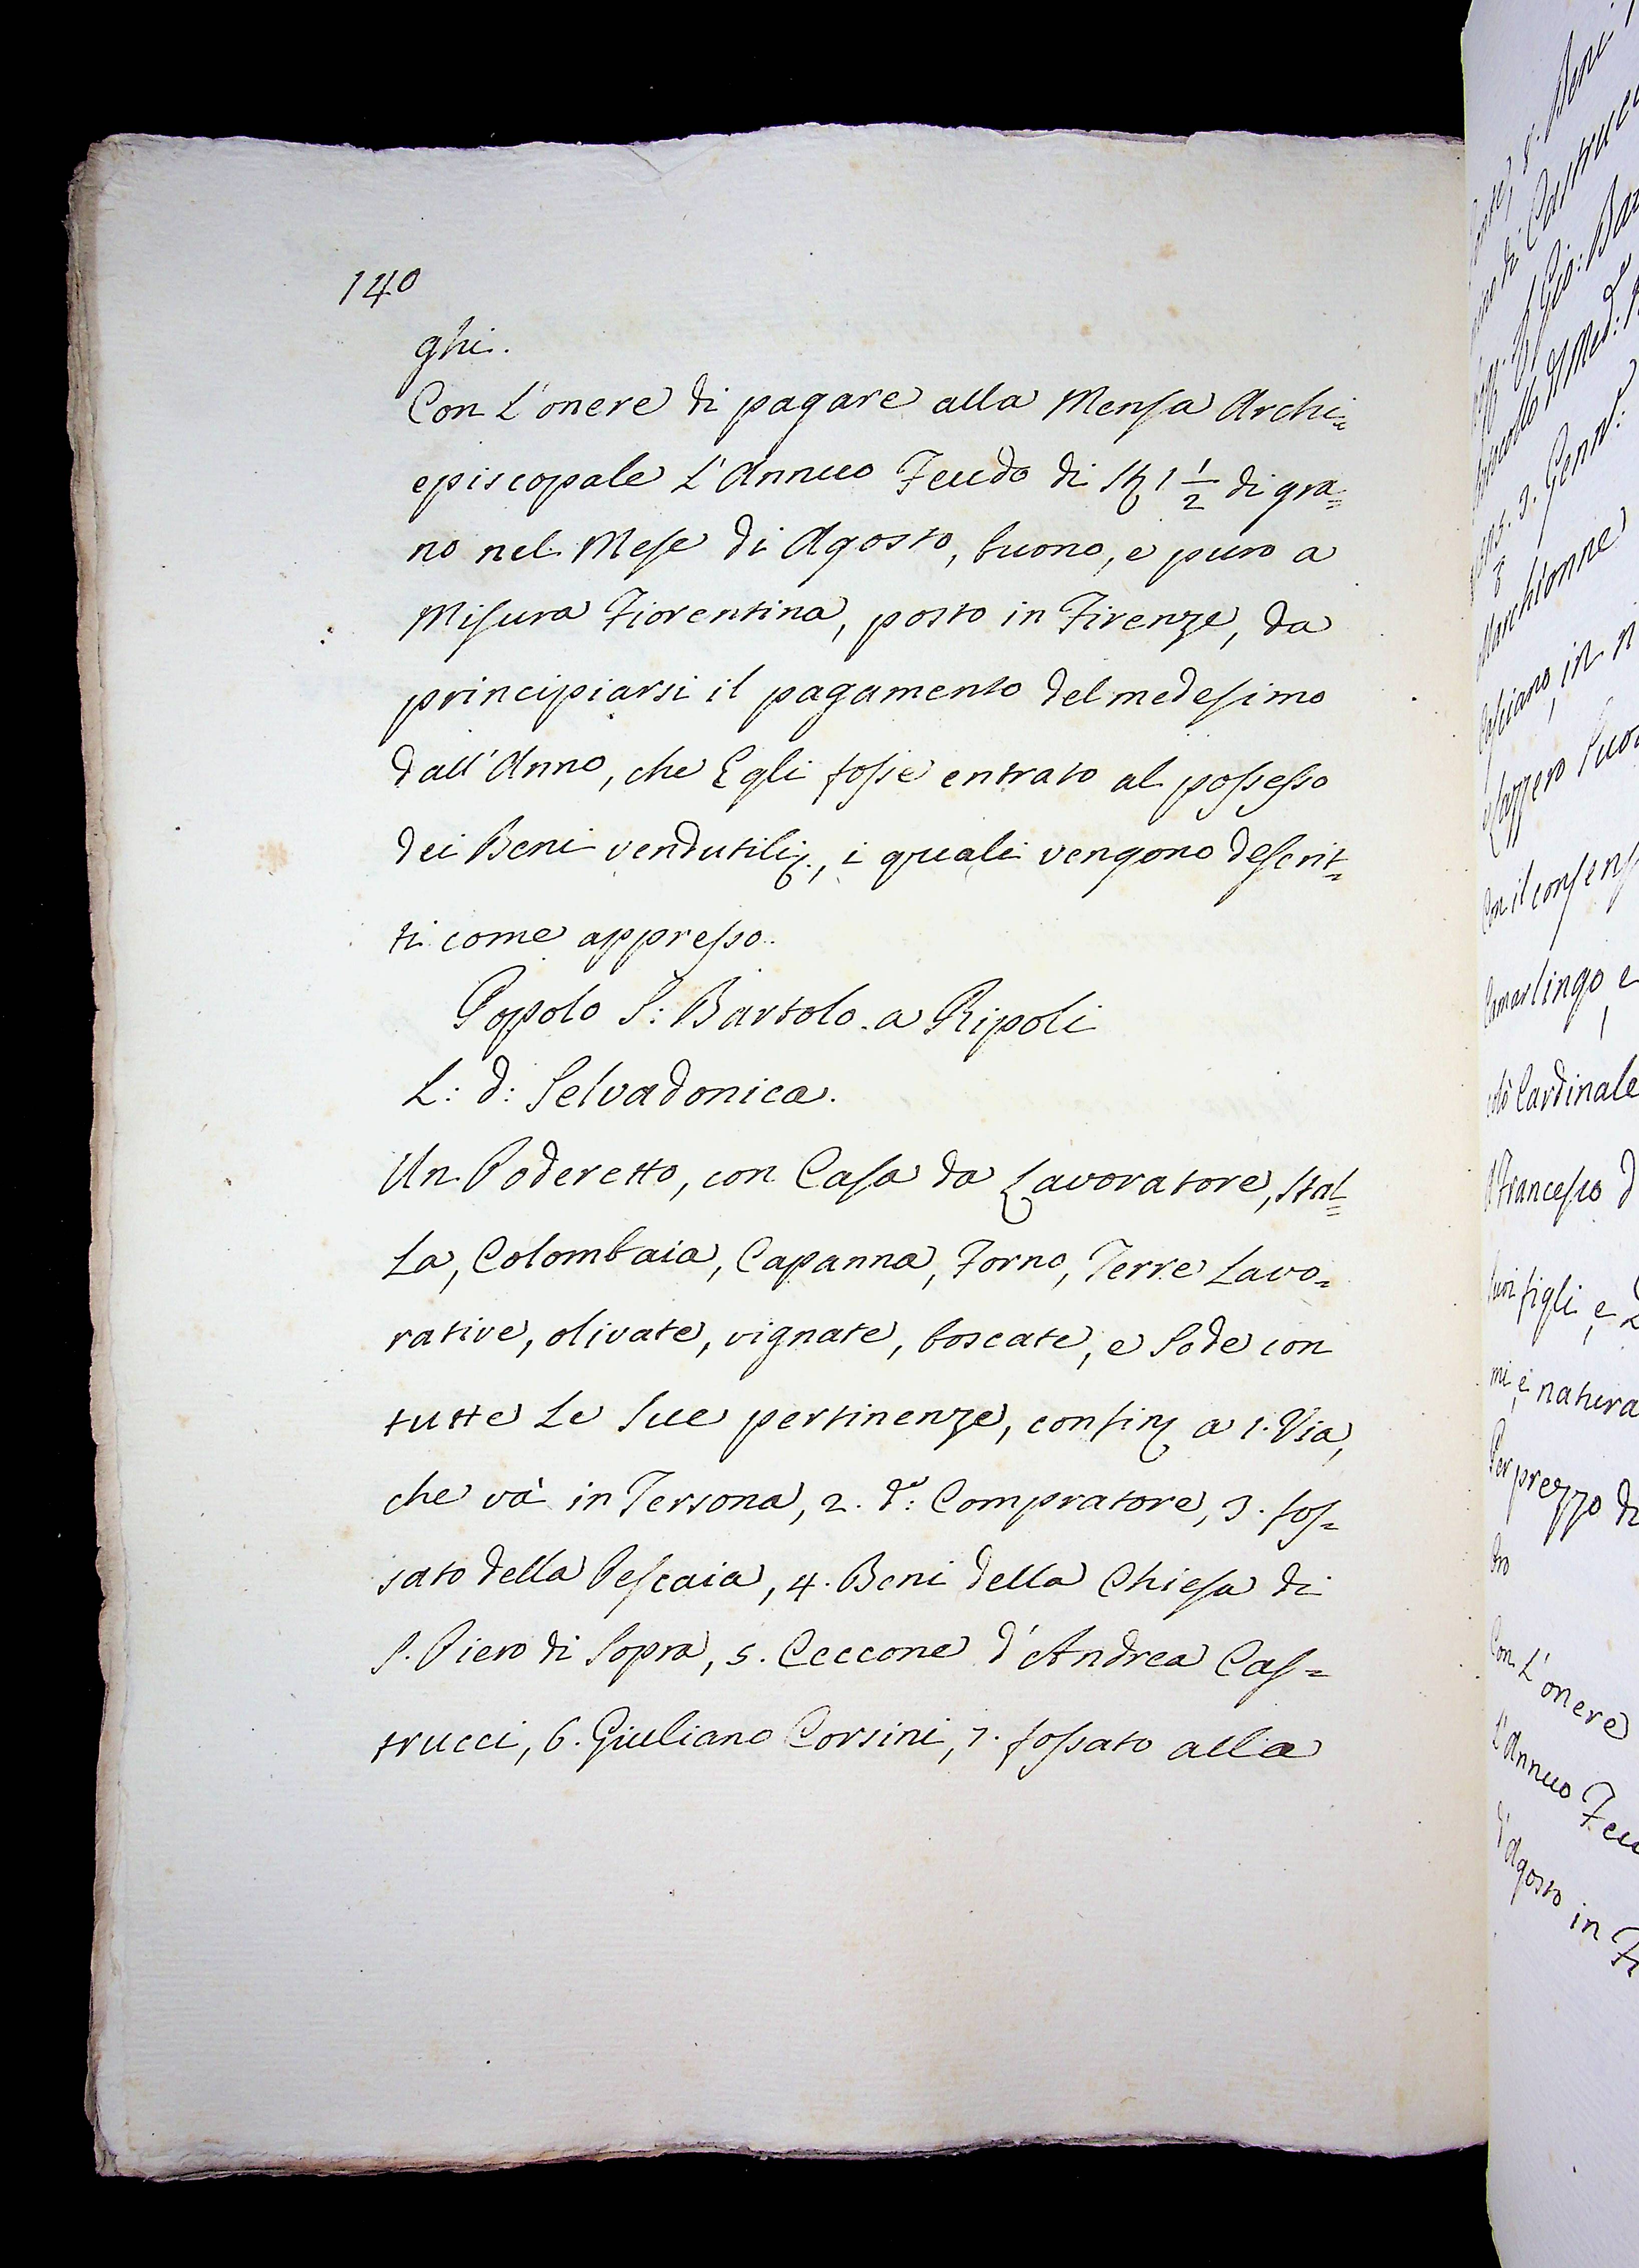 140
ghi.
Con L'onere di pagare alla Mensa Archi=
episcopale L'Annuo Feudo di St 1 1/2 di gra=
no nel Mese di Agosto, buono, e puro a
Misura Fiorentina, posto in Firenze, da
principiarsi il pagamento del medesimo
dall'Anno, che Egli fosse entrato al possesso
dei Beni vendutili, i quali vengono descrit=
ti come appresso.
Popolo S: Bartolo a Ripoli
L: d: Selvadonica.
Un Poderetto, con Casa da Lavoratore, Stal=
La, Colombaia, Capanna, Forno, Terre Lavo=
rative, olivate, vignate, boscate, e Sode con
tutte Le Sue pertinenze, confin a 1. Via,
che và in Tersona, 2. do: Compratore, 3. fos=
sato della Pescaia, 4. Beni della Chiesa di
S. Piero di Sopra, 5. Ceccone d'Andrea Cas=
trucci, 6. Giuliano Corsini, 7. fossato alla
Beni
Gio:
3. Genn:
Marchionne
in n
Con il consens
Camarlingo, e
Cardinale
Francesco d
suoi figli, e
mi, e natura
Per prezzo di
Con L'onere
L'Annuo Feu
d'Agosto in Fi